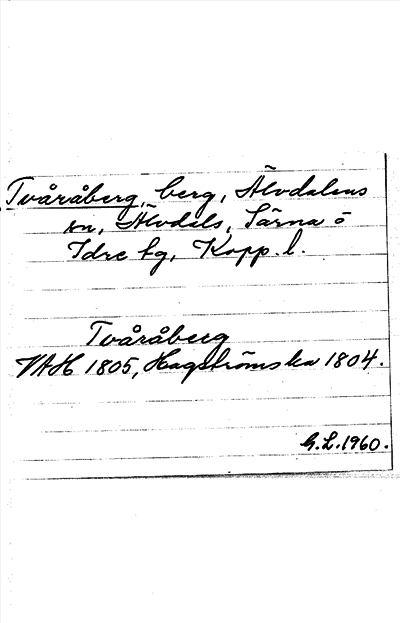 Tvåråberg, berg, Älvdalens
sn, Älvdals, Särna o
Idre tg, Kopp. l.
Tvåråberg
VAH 1805, Hagströms ka 1804.
G.L. 1960.